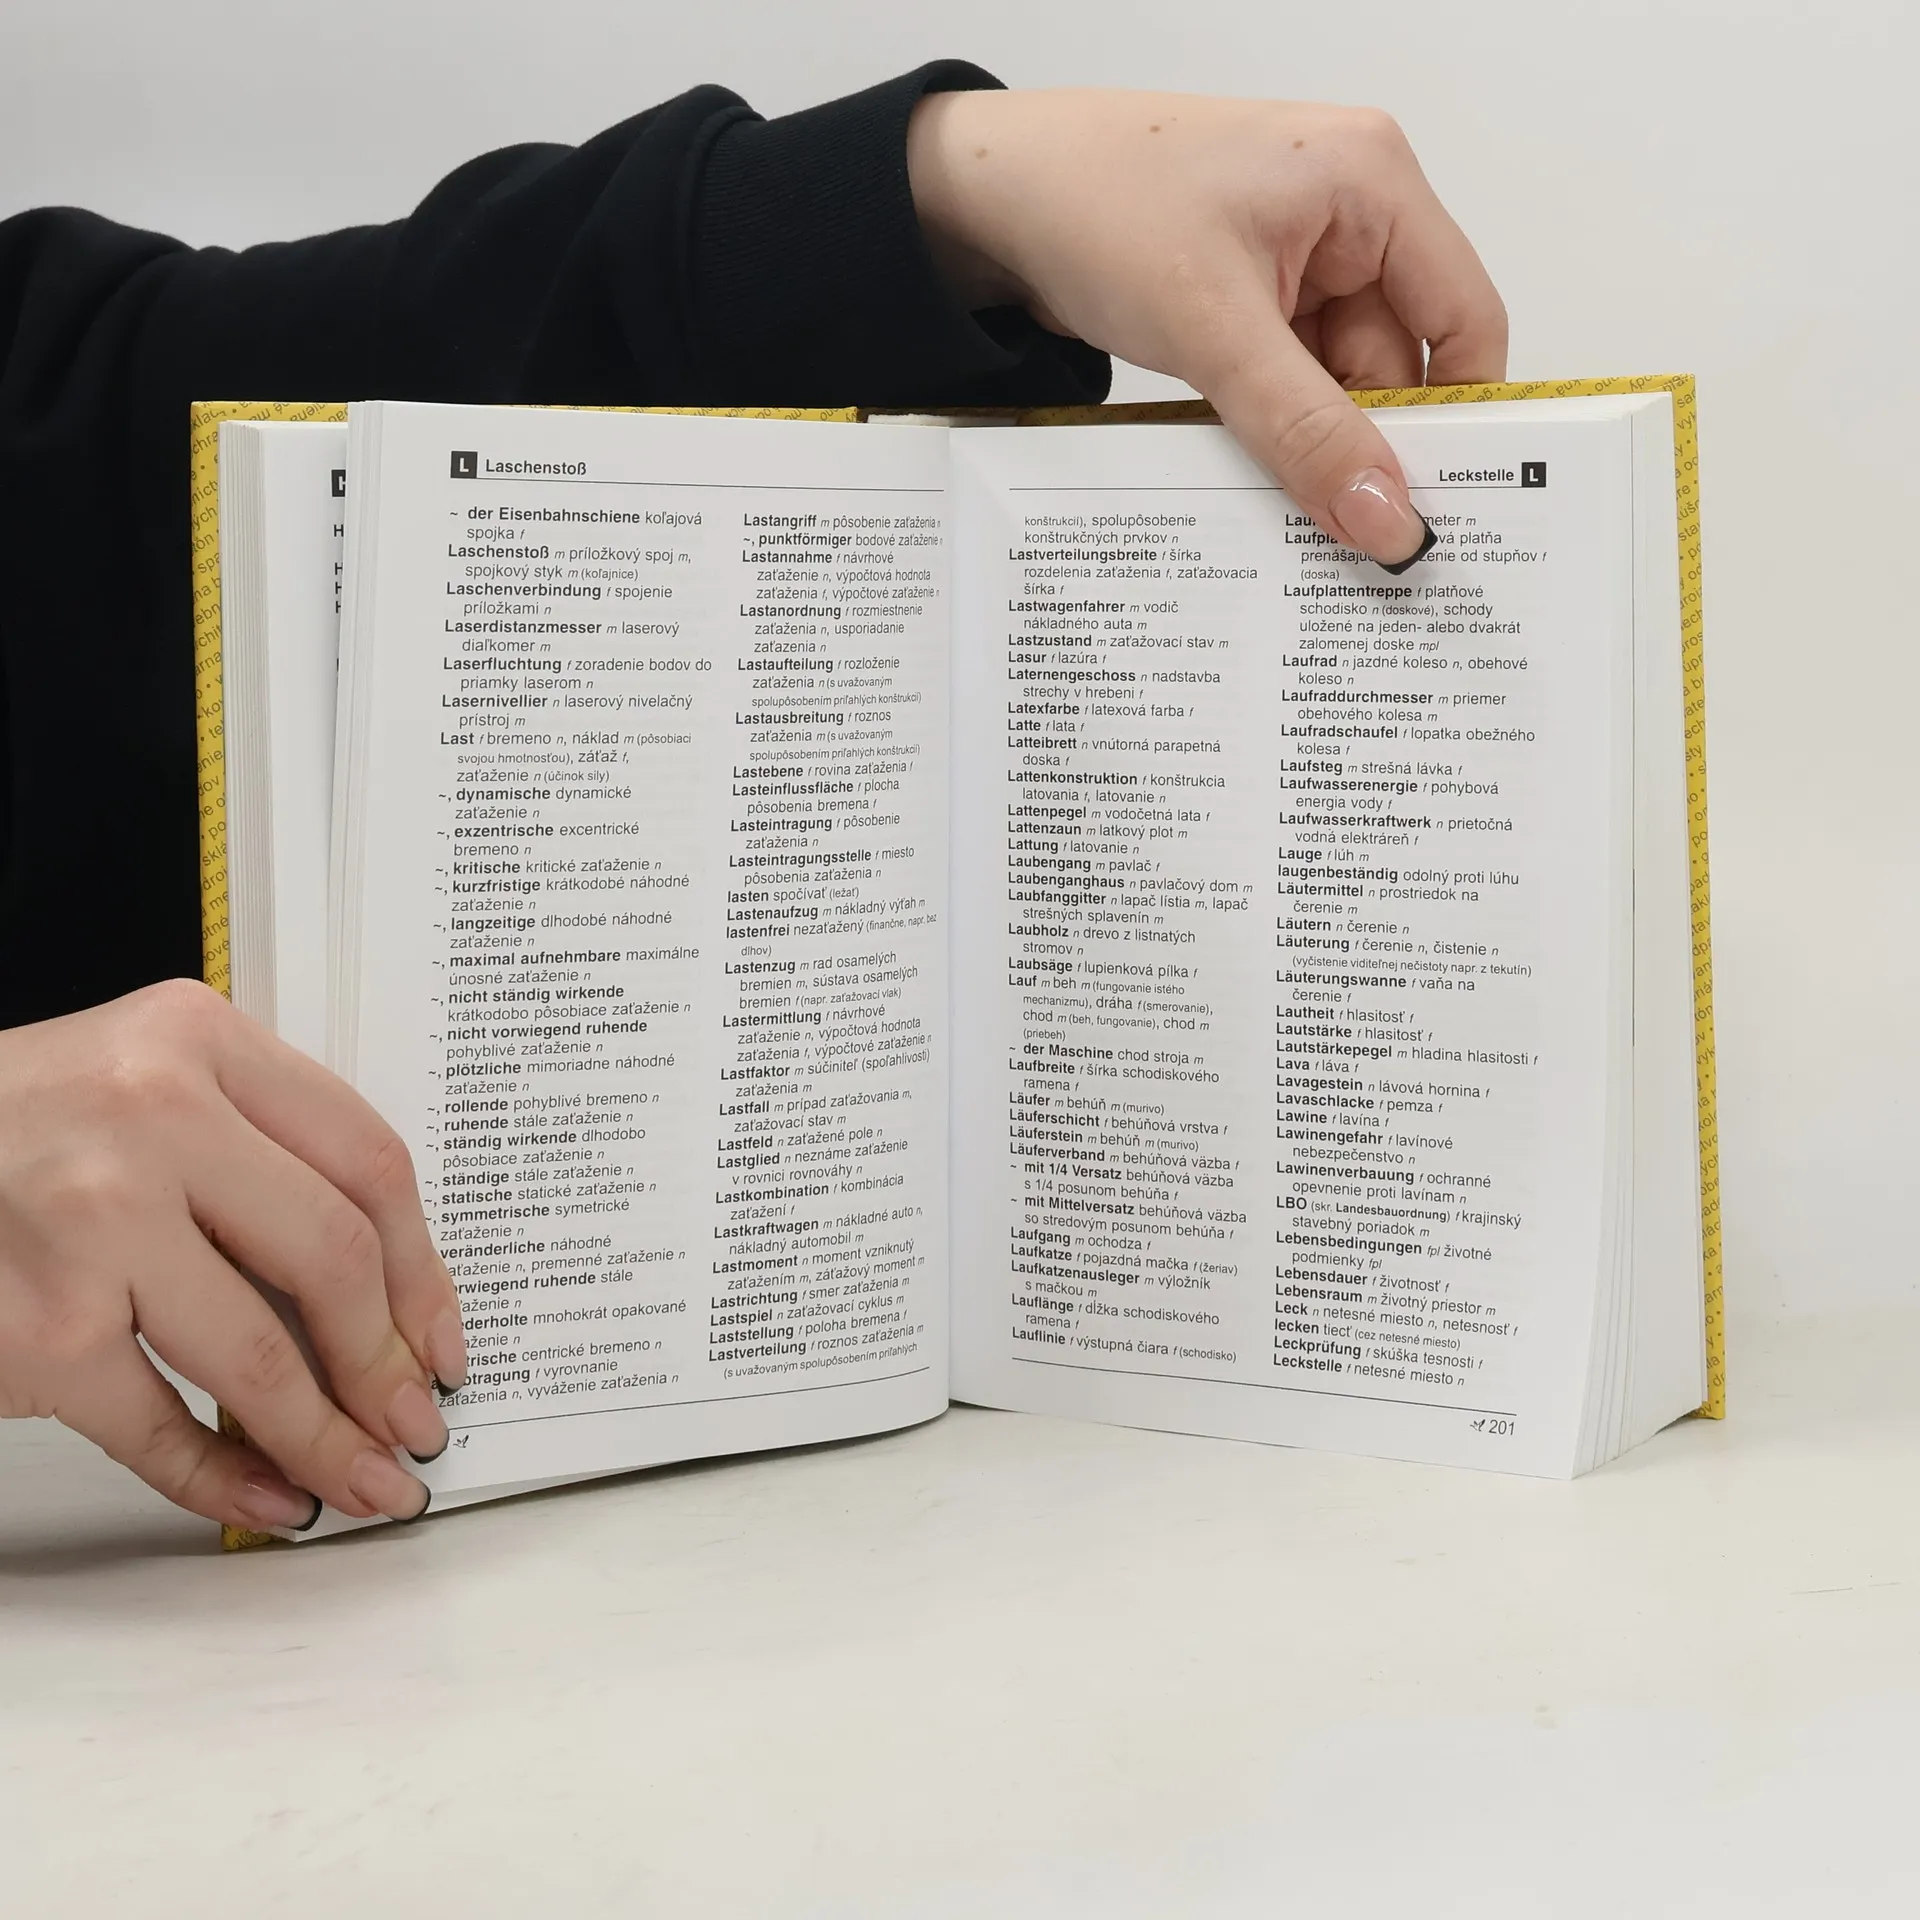 L Laschenstoß
~ der Eisenbahnschiene koľajová
spojka f
Laschenstoß m príložkový spoj m,
spojkový styk m (koľajnice)
Laschenverbindung f spojenie
príložkami n
Laserdistanzmesser m laserový
diaľkomer m
Laserfluchtung f zoradenie bodov do
priamky laserom n
Lasernivellier n laserový nivelačný
prístroj m
Last f bremeno n, náklad m (pôsobiaci
svojou hmotnosťou), záťaž f,
zaťaženie n (účinok sily)
~, dynamische dynamické
zaťaženie n
~, exzentrische excentrické
bremeno n
~, kritische kritické zaťaženie n
~, kurzfristige krátkodobé náhodné
zaťaženie n
~, langzeitige dlhodobé náhodné
zaťaženie n
~, maximal aufnehmbare maximálne
únosné zaťaženie n
~, nicht ständig wirkende
krátkodobo pôsobiace zaťaženie n
~, nicht vorwiegend ruhende
pohyblivé zaťaženie n
~, plötzliche mimoriadne náhodné
zaťaženie n
~, rollende pohyblivé bremeno n
~, ruhende stále zaťaženie n
~, ständig wirkende dlhodobo
pôsobiace zaťaženie n
~, ständige stále zaťaženie n
~, statische statické zaťaženie n
~, symmetrische symetrické
zaťaženie n
veränderliche náhodné
zaťaženie n, premenné zaťaženie n
orwiegend ruhende stále
ťaženie n
ederholte mnohokrát opakované
aženie n
trische centrické bremeno n
otragung f vyrovnanie
zaťaženia n, vyváženie zaťaženia n
Lastangriff m pôsobenie zaťaženia n
~, punktförmiger bodové zaťaženie n
Lastannahme f návrhové
zaťaženie n, výpočtová hodnota
zaťaženia f, výpočtové zaťaženie n
Lastanordnung f rozmiestnenie
zaťaženia n, usporiadanie
zaťazenia n
Lastaufteilung f rozloženie
zaťaženia n (s uvažovaným
spolupôsobením priľahlých konštrukcií)
Lastausbreitung f roznos
zaťaženia m (s uvažovaným
spolupôsobením priľahlých konštrukcií)
Lastebene f rovina zaťaženia f
Lasteinflussfläche f plocha
pôsobenia bremena f
Lasteintragung f pôsobenie
zaťaženia n
Lasteintragungsstelle f miesto
pôsobenia zaťaženia n
lasten spočívať (ležať)
Lastenaufzug m nákladný výťah m
lastenfrei nezaťažený (finančne, napr. bez
dlhov)
Lastenzug m rad osamelých
bremien m, sústava osamelých
bremien f (napr. zaťažovací vlak)
Lastermittlung f návrhové
zaťaženie n, výpočtová hodnota
zaťaženia f, výpočtové zaťaženie n
Lastfaktor m súčiniteľ (spoľahlivosti)
zaťaženia m
Lastfall m prípad zaťažovania m,
zaťažovací stav m
Lastfeld n zaťažené pole n
Lastglied n neznáme zaťaženie
v rovnici rovnováhy n
Lastkombination f kombinácia
zaťažení f
Lastkraftwagen m nákladné auto n,
nákladný automobil m
Lastmoment n moment vzniknutý
zaťažením m, záťažový moment m
Lastrichtung f smer zaťaženia m
Lastspiel n zaťažovací cyklus m
Laststellung f poloha bremena f
Lastverteilung f roznos zaťaženia m
(s uvažovaným spolupôsobením priľahlých
Leckstelle L
konštrukcií), spolupôsobenie
konštrukčných prvkov n
Lastverteilungsbreite f šírka
rozdelenia zaťaženia f, zaťažovacia
šírka f
Lastwagenfahrer m vodič
nákladného auta m
Lastzustand m zaťažovací stav m
Lasur f lazúra f
Laternengeschoss n nadstavba
strechy v hrebeni f
Latexfarbe f latexová farba f
Latte f lata f
Latteibrett n vnútorná parapetná
doska f
Lattenkonstruktion f konštrukcia
latovania f, latovanie n
Lattenpegel m vodočetná lata f
Lattenzaun m latkový plot m
Lattung f latovanie n
Laubengang m pavlač f
Laubenganghaus n pavlačový dom m
Laubfanggitter n lapač lístia m, lapač
strešných splavenín m
Laubholz n drevo z listnatých
stromov n
Laubsäge f lupienková pílka f
Lauf m beh m (fungovanie istého
mechanizmu), dráha f (smerovanie),
chod m (beh, fungovanie), chod m
(priebeh)
~ der Maschine chod stroja m
Laufbreite f šírka schodiskového
ramena f
Läufer m behúň m (murivo)
Läuferschicht f behúňová vrstva f
Läuferstein m behúň m (murivo)
Läuferverband m behúňová väzba f
~ mit 1/4 Versatz behúňová väzba
s 1/4 posunom behúňa f
~ mit Mittelversatz behúňová väzba
so stredovým posunom behúňa f
Laufgang m ochodza f
Laufkatze f pojazdná mačka f (žeriav)
Laufkatzenausleger m výložník
s mačkou m
Lauflänge f dĺžka schodiskového
ramena f
Lauflinie f výstupná čiara f (schodisko)
Lau meter m
Laufpla vá platňa
prenášajúc ženie od stupňov f
(doska)
Laufplattentreppe f platňové
schodisko n (doskové), schody
uložené na jeden- alebo dvakrát
zalomenej doske mpl
Laufrad n jazdné koleso n, obehové
koleso n
Laufraddurchmesser m priemer
obehového kolesa m
Laufradschaufel f lopatka obežného
kolesa f
Laufsteg m strešná lávka f
Laufwasserenergie f pohybová
energia vody f
Laufwasserkraftwerk n prietočná
vodná elektráreň f
Lauge f lúh m
laugenbeständig odolný proti lúhu
Läutermittel n prostriedok na
čerenie m
Läutern n čerenie n
Läuterung f čerenie n, čistenie n
(vyčistenie viditeľnej nečistoty napr. z tekutín)
Läuterungswanne f vaňa na
čerenie f
Lautheit f hlasitosť f
Lautstärke f hlasitosť f
Lautstärkepegel m hladina hlasitosti f
Lava f láva f
Lavagestein n lávová hornina f
Lavaschlacke f pemza f
Lawine f lavína f
Lawinengefahr f lavínové
nebezpečenstvo n
Lawinenverbauung f ochranné
opevnenie proti lavínam n
LBO (skr. Landesbauordnung) f krajinský
stavebný poriadok m
Lebensbedingungen fpl životné
podmienky fpl
Lebensdauer f životnosť f
Lebensraum m životný priestor m
Leck n netesné miesto n, netesnosť f
lecken tiecť (cez netesné miesto)
Leckprüfung f skúška tesnosti f
Leckstelle f netesné miesto n
201